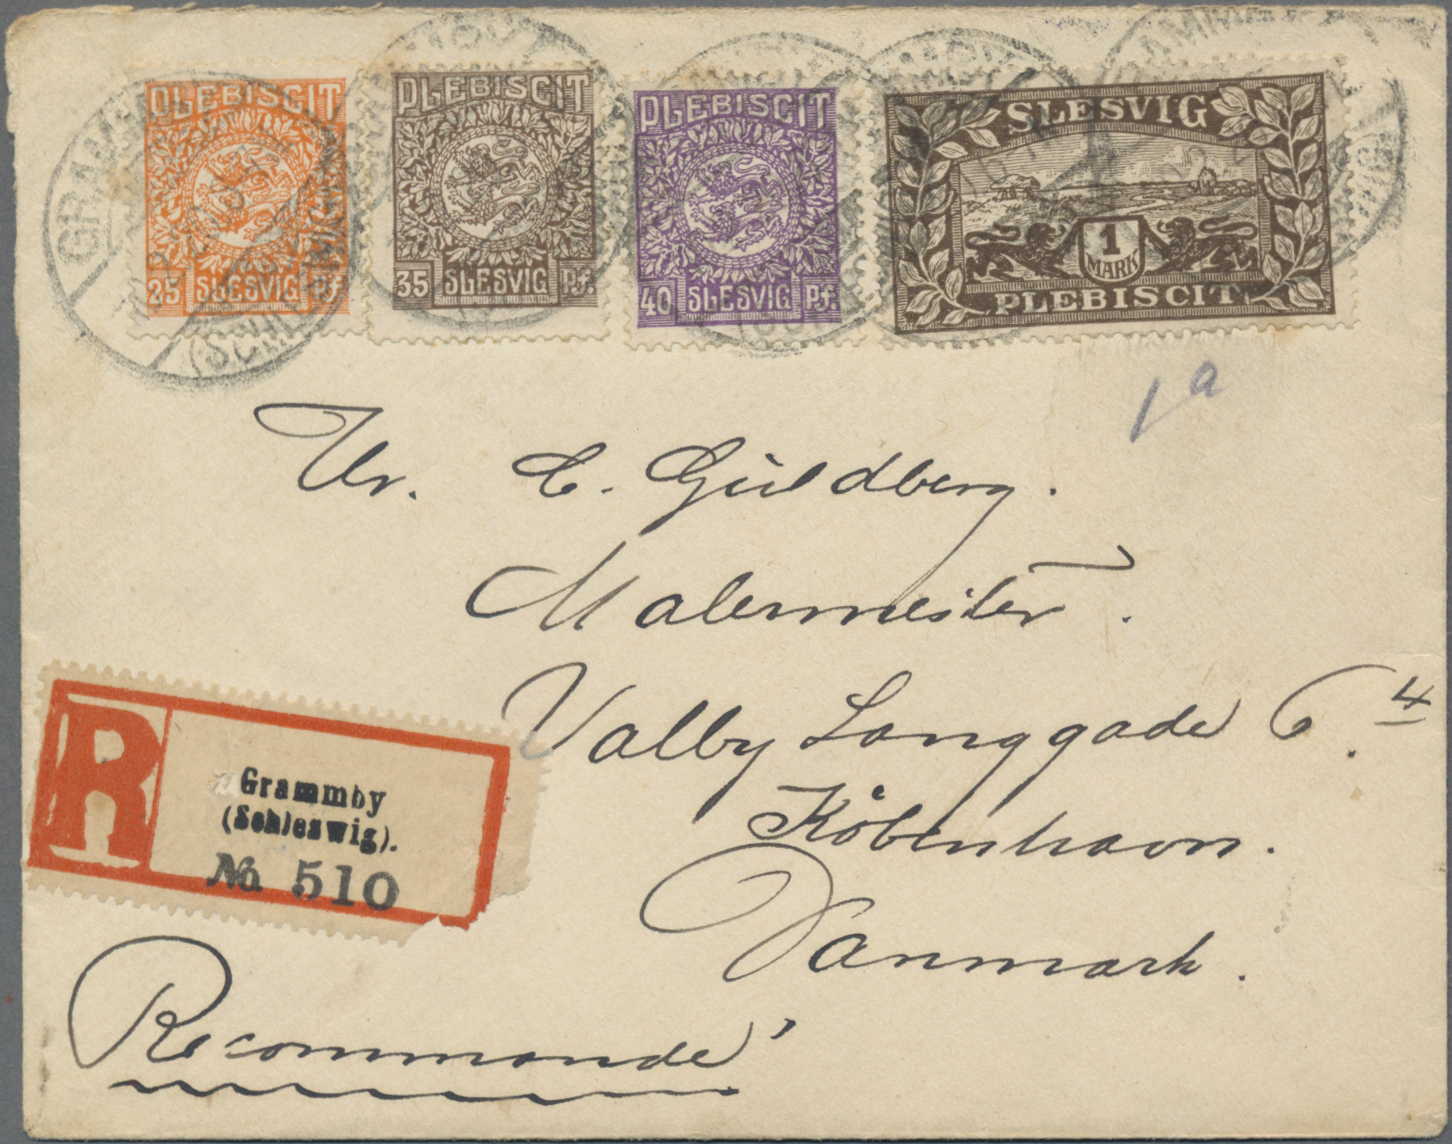 PLEBISCIT
25 SLESVIG Pf.
PLEBISCIT
35 SLESVIG Pf.
PLEBISCIT
40 SLESVIG Pf.
SLESVIG
1
MARK
PLEBISCIT
Hr. C. Guldberg.
Malermester.
Valby Langgade 6. 4
København.
Danmark.
R
Grammby
(Schleswig).
No. 510
Recommandé